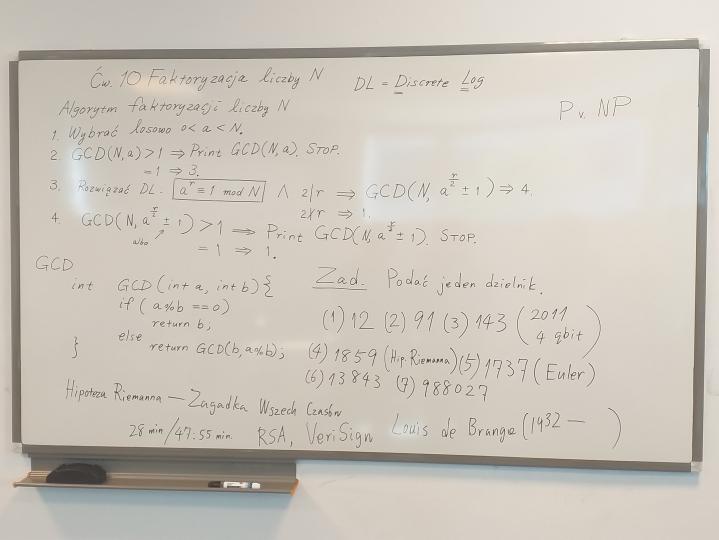 Ćw. 10 Faktoryzacja liczby N
DL = Discrete Log
P v. NP
Algorytm faktoryzacji liczby N
1. Wybrać losowo 0 < a < N.
2. GCD(N,a) > 1 ⇒ Print GCD(N,a). STOP.
= 1 ⇒ 3.
3. Rozwiązać DL. a^r ≡ 1 mod N ∧ 2|r ⇒ GCD(N, a^(r/2) ± 1) ⇒ 4.
2∤r ⇒ 1.
4. GCD(N, a^(r/2) ± 1) > 1 ⇒ Print GCD(N, a^(r/2) ± 1). STOP.
albo ↗ = 1 ⇒ 1.
GCD
int GCD (int a, int b) {
if ( a%b == 0)
return b;
else
return GCD(b, a%b);
}
Zad. Podać jeden dzielnik.
(1) 12 (2) 91 (3) 143 ( 2011
4 qbit )
(4) 1859 (Hip. Riemanna) (5) 1737 (Euler)
(6) 13843 (7) 988027
Hipoteza Riemanna — Zagadka Wszech Czasów
28 min / 47:55 min. RSA, VeriSign Louis de Brange (1932 — )